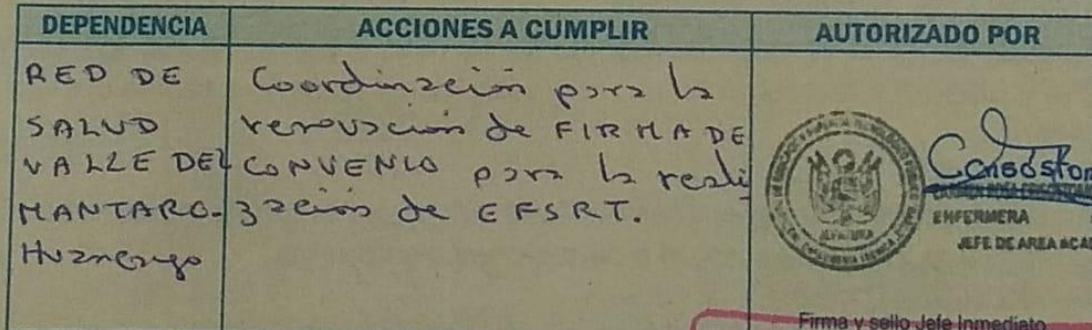 DEPENDENCIA
ACCIONES A CUMPLIR
AUTORIZADO POR
RED DE
SALUD
VALLE DEL
MANTARO-
Huancayo
Coordinación para la
renovación de FIRMA DE
CONVENIO para la reali
zación de EFSRT.
JEFATURA
ENFERMERA
JEFE DE AREA ACAD
Firma y sello Jefe Inmediato